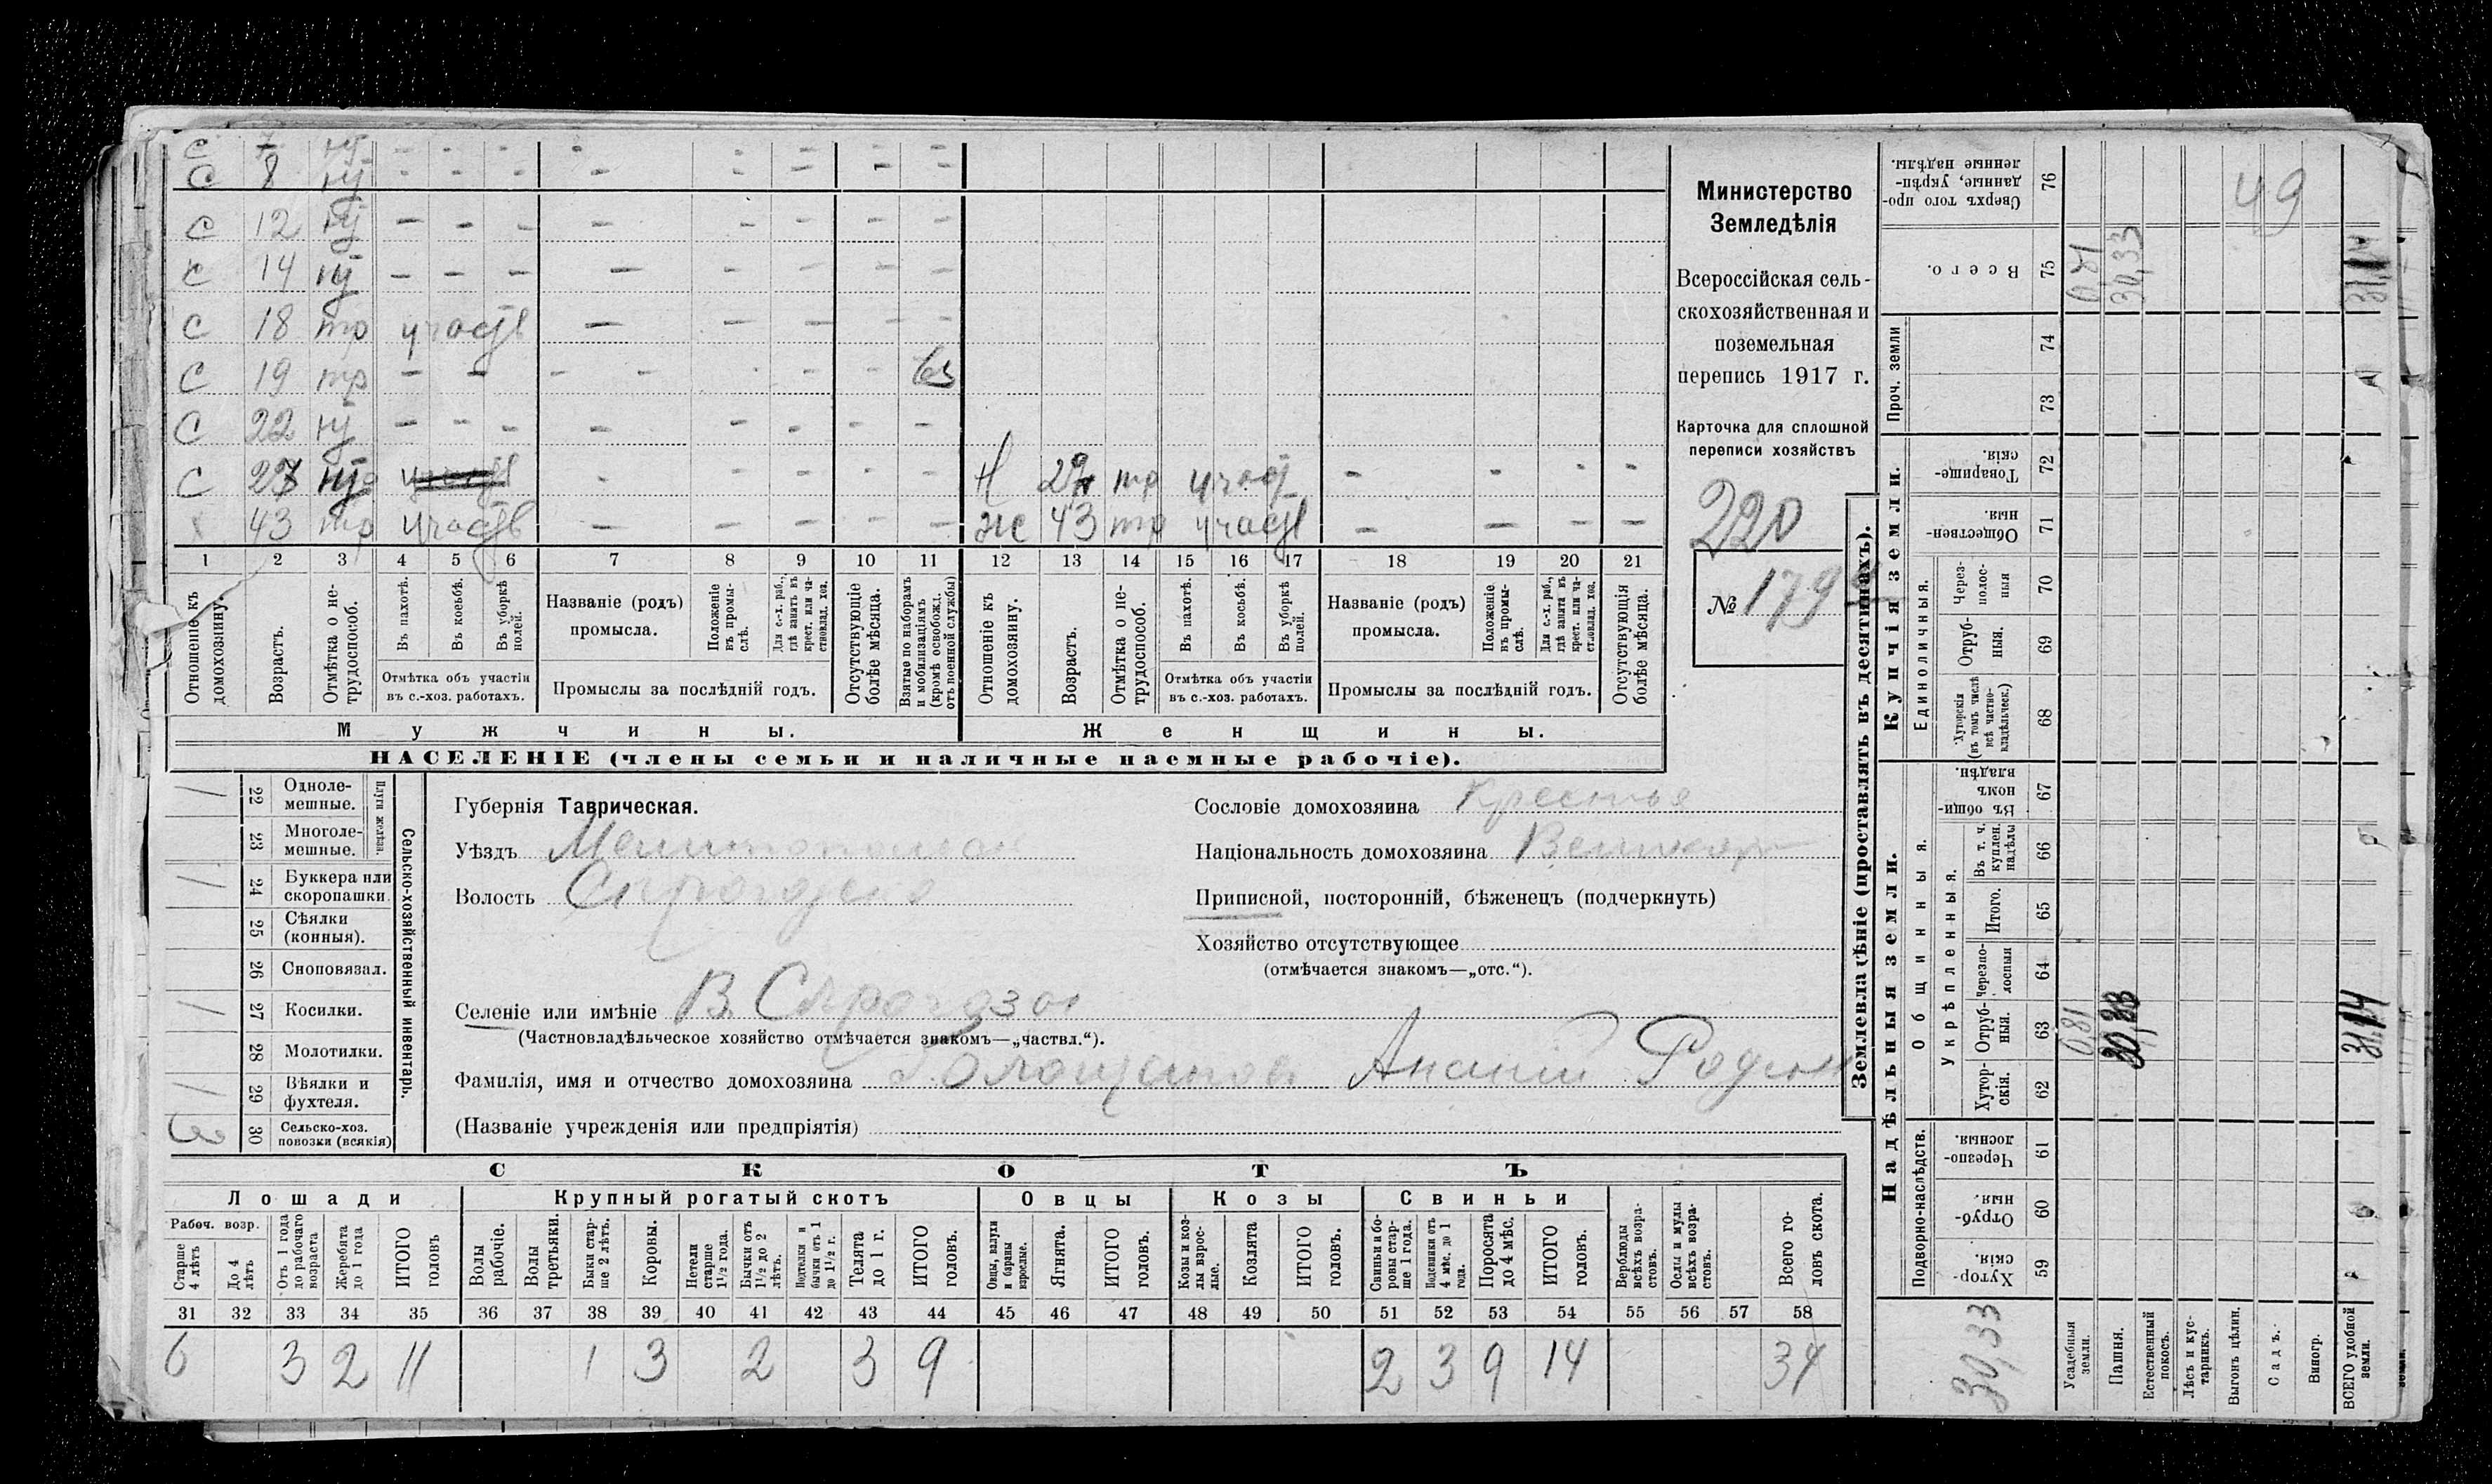 с 7 нт - - - - - - - -
с 8 нт - - - - - - - -
с 12 нт - - - - - - - -
с 14 нт - - - - - - - -
с 18 тр участв - - - - -
с 19 тр - - - - - - - вз
с 22 нт - - - - - - - -
с 27 нт - - - - - Н 29 тр участ - - - -
х 43 тр участв - - - - - же 43 тр участв - - - -
1 2 3 4 5 6 7 8 9 10 11 12 13 14 15 16 17 18 19 20 21
Отношеніе къ домохозяину.
Возрастъ.
Отмѣтка о не-
трудоспособ.
Въ пахотѣ.
Въ косьбѣ.
Въ уборкѣ полей.
Отмѣтка объ участіи
въ с.-хоз. работахъ.
Названіе (родъ)
промысла.
Положеніе въ промы-
слѣ.
Для с.-х. раб.,
гдѣ занятъ въ
крест. или ча-
стновлад. хоз.
Промыслы за послѣдній годъ.
Отсутствующіе
болѣе мѣсяца.
Взятые по наборамъ
и мобилизаціямъ
(кромѣ освобожд.
отъ военной службы)
Отношеніе къ
домохозяину.
Возрастъ.
Отмѣтка о не-
трудоспособ.
Въ пахотѣ.
Въ косьбѣ.
Въ уборкѣ
полей.
Отмѣтка объ участіи
въ с.-хоз. работахъ.
Названіе (родъ)
промысла.
Положеніе
въ промы-
слѣ.
Для с.-х. раб.,
гдѣ занята въ
крест. или ча-
стновлад. хоз.
Промыслы за послѣдній годъ.
Отсутствующія
болѣе мѣсяца.
Мужчины. Женщины.
НАСЕЛЕНІЕ (члены семьи и наличные наемные рабочіе).
Министерство
Земледѣлія
Всероссійская сель-
скохозяйственная и
поземельная
перепись 1917 г.
Карточка для сплошной
переписи хозяйствъ
220
№ 179
/ 22 Одноле-
мешные.
23 Многоле-
мешные.
Плуги желѣзн.
/ 24 Буккера или
скоропашки
25 Сѣялки
(конныя).
26 Сноповязал.
/ 27 Косилки.
28 Молотилки.
/ 29 Вѣялки и
фухтеля.
30 Сельско-хоз.
повозки (всякія)
Сельско-хозяйственный инвентарь.
Губернія Таврическая.
Уѣздъ Мелитопольск
Волость
Селеніе или имѣніе В. Сѣрогозы
(Частновладѣльческое хозяйство отмѣчается знакомъ—„частвл.“).
Фамилія, имя и отчество домохозяина Голощапов Ананий Родион
(Названіе учрежденія или предпріятія)
Сословіе домохозяина Крестья
Національность домохозяина Великор
Приписной, посторонній, бѣженецъ (подчеркнуть)
Хозяйство отсутствующее
(отмѣчается знакомъ—„отс.“).
СКОТЪ
Лошади Крупный рогатый скотъ Овцы Козы Свиньи
Рабоч. возр.
Старше
4 лѣтъ
До 4
лѣтъ
Отъ 1 года
до рабочаго
возраста
Жеребята
до 1 года
ИТОГО
головъ
Волы
рабочіе.
Волы
третьяки.
Быки стар-
ше 2 лѣтъ.
Коровы.
Нетели
старше
1½ года.
Бычки отъ
1½ до 2
лѣтъ.
Подтелки и
бычки отъ 1
до 1½ г.
Телята
до 1 г.
ИТОГО
головъ.
Овцы, валухи
и бараны
взрослые.
Ягнята.
ИТОГО
головъ.
Козы и коз-
лы взрос-
лые.
Козлята
ИТОГО
головъ.
Свиньи и бо-
ровы стар-
ше 1 года.
Подсвинки отъ
4 мѣс. до 1
года.
Поросята
до 4 мѣс.
ИТОГО
головъ.
Верблюды
всѣхъ возра-
стовъ.
Ослы и мулы
всѣхъ возра-
стовъ.
Всего го-
ловъ скота.
31 32 33 34 35 36 37 38 39 40 41 42 43 44 45 46 47 48 49 50 51 52 53 54 55 56 57 58
6 3 2 11 1 3 2 3 9 2 3 9 14 34
Землевладѣніе (проставлять въ десятинахъ).
Надѣльныя земли.
Купчія земли.
Проч. земли
Подворно-наслѣдств.
Общинныя.
Укрѣпленныя.
Единоличныя.
Хутор-
скія. 59
Отруб-
ныя. 60
Черезпо-
лосныя. 61
Хутор-
скія. 62
Отруб-
ныя. 63 0,81 30,33 31,14
Черезпо-
лосныя 64
Итого. 65
Въ т. ч.
куплен.
надѣлы 66
Въ общи-
номъ
владѣн. 67
Хуторскія
(въ томъ числѣ
всѣ частно-
владѣльческ.) 68
Отруб-
ныя. 69
Через-
полос-
ныя 70
Обществен-
ныя. 71
Товарище-
скія. 72
73
74
Всего. 75 0,81 30,33 31,14
Сверхъ того про-
данные, укрѣп-
ленные надѣлы. 76 49
30,33
Усадебныя
земли.
Пашня.
Естественный
покосъ.
Лѣсъ и кус-
тарникъ.
Выгонъ цѣлин.
Садъ.
Виногр.
ВСЕГО удобной
земли.